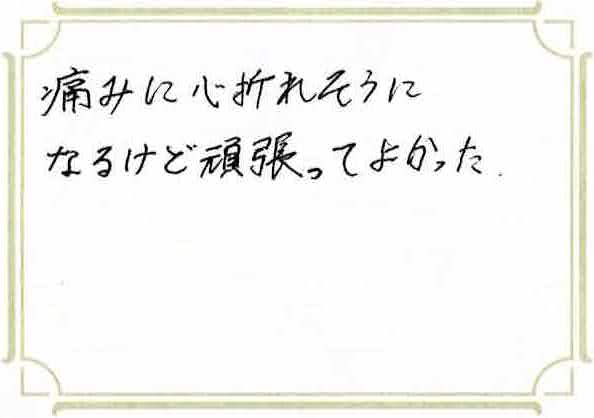 痛みに心折れそうに
なるけど頑張ってよかった.